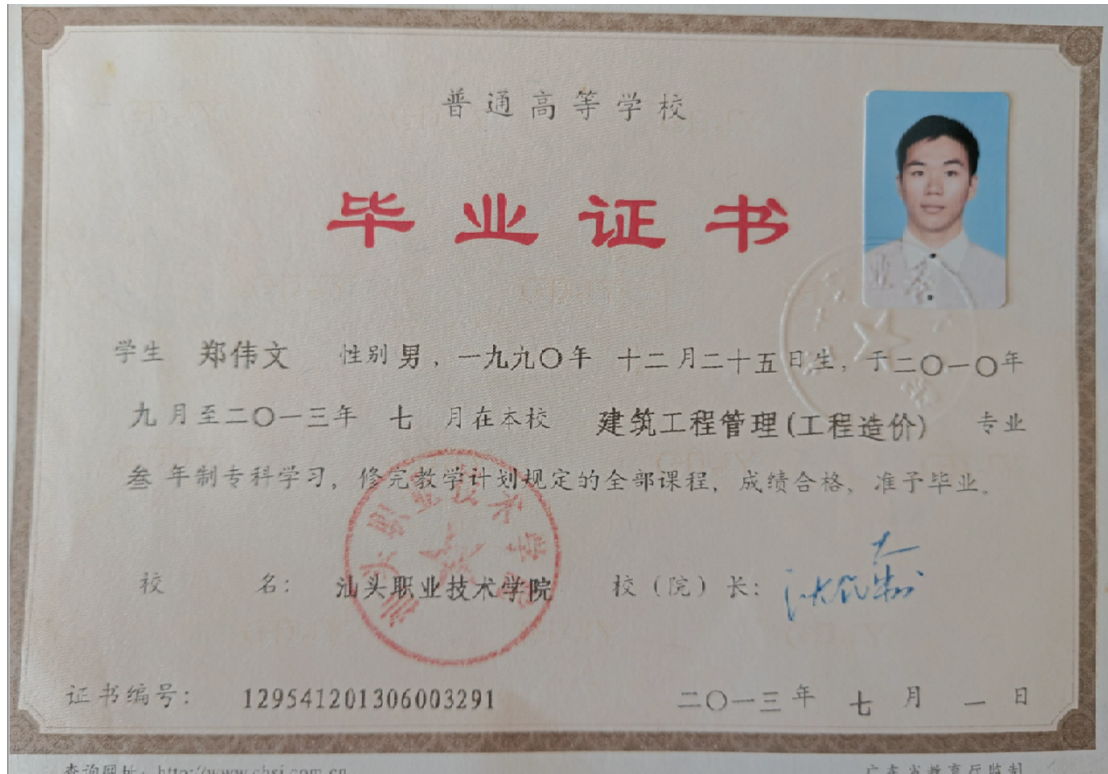 普通高等学校
毕业证书
学生 郑伟文 性别 男，一九九〇年 十二月二十五日生，于二〇一〇年
九月至二〇一三年 七 月在本校 建筑工程管理(工程造价) 专业
叁 年制专科学习，修完教学计划规定的全部课程，成绩合格，准予毕业。
汕头职业技术学院
校 名： 汕头职业技术学院 校（院）长：
证书编号： 129541201306003291 二〇一三年 七 月 一 日
查询网址：http://www.chsi.com.cn 广东省教育厅监制